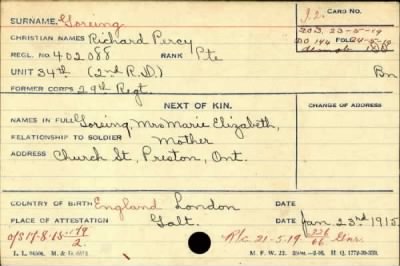 SURNAME, Goreing
CARD No.
CHRISTIAN NAMES Richard Percy
REGL. No. 402088 RANK Pte
D.O. 144 FOLC 24-5-19
UNIT 34th (2nd R.D.) Bn
FORMER CORPS 29th Regt
NEXT OF KIN.
CHANGE OF ADDRESS
NAMES IN FULL Goreing, Mrs Marie Elizabeth,
RELATIONSHIP TO SOLDIER Mother
ADDRESS Church St, Preston, Ont.
COUNTRY OF BIRTH England London DATE
PLACE OF ATTESTATION Galt. DATE Jan. 23rd 1915
O/S 17-8-15
2.
R/C 21-5-19
M. F. W. 22.